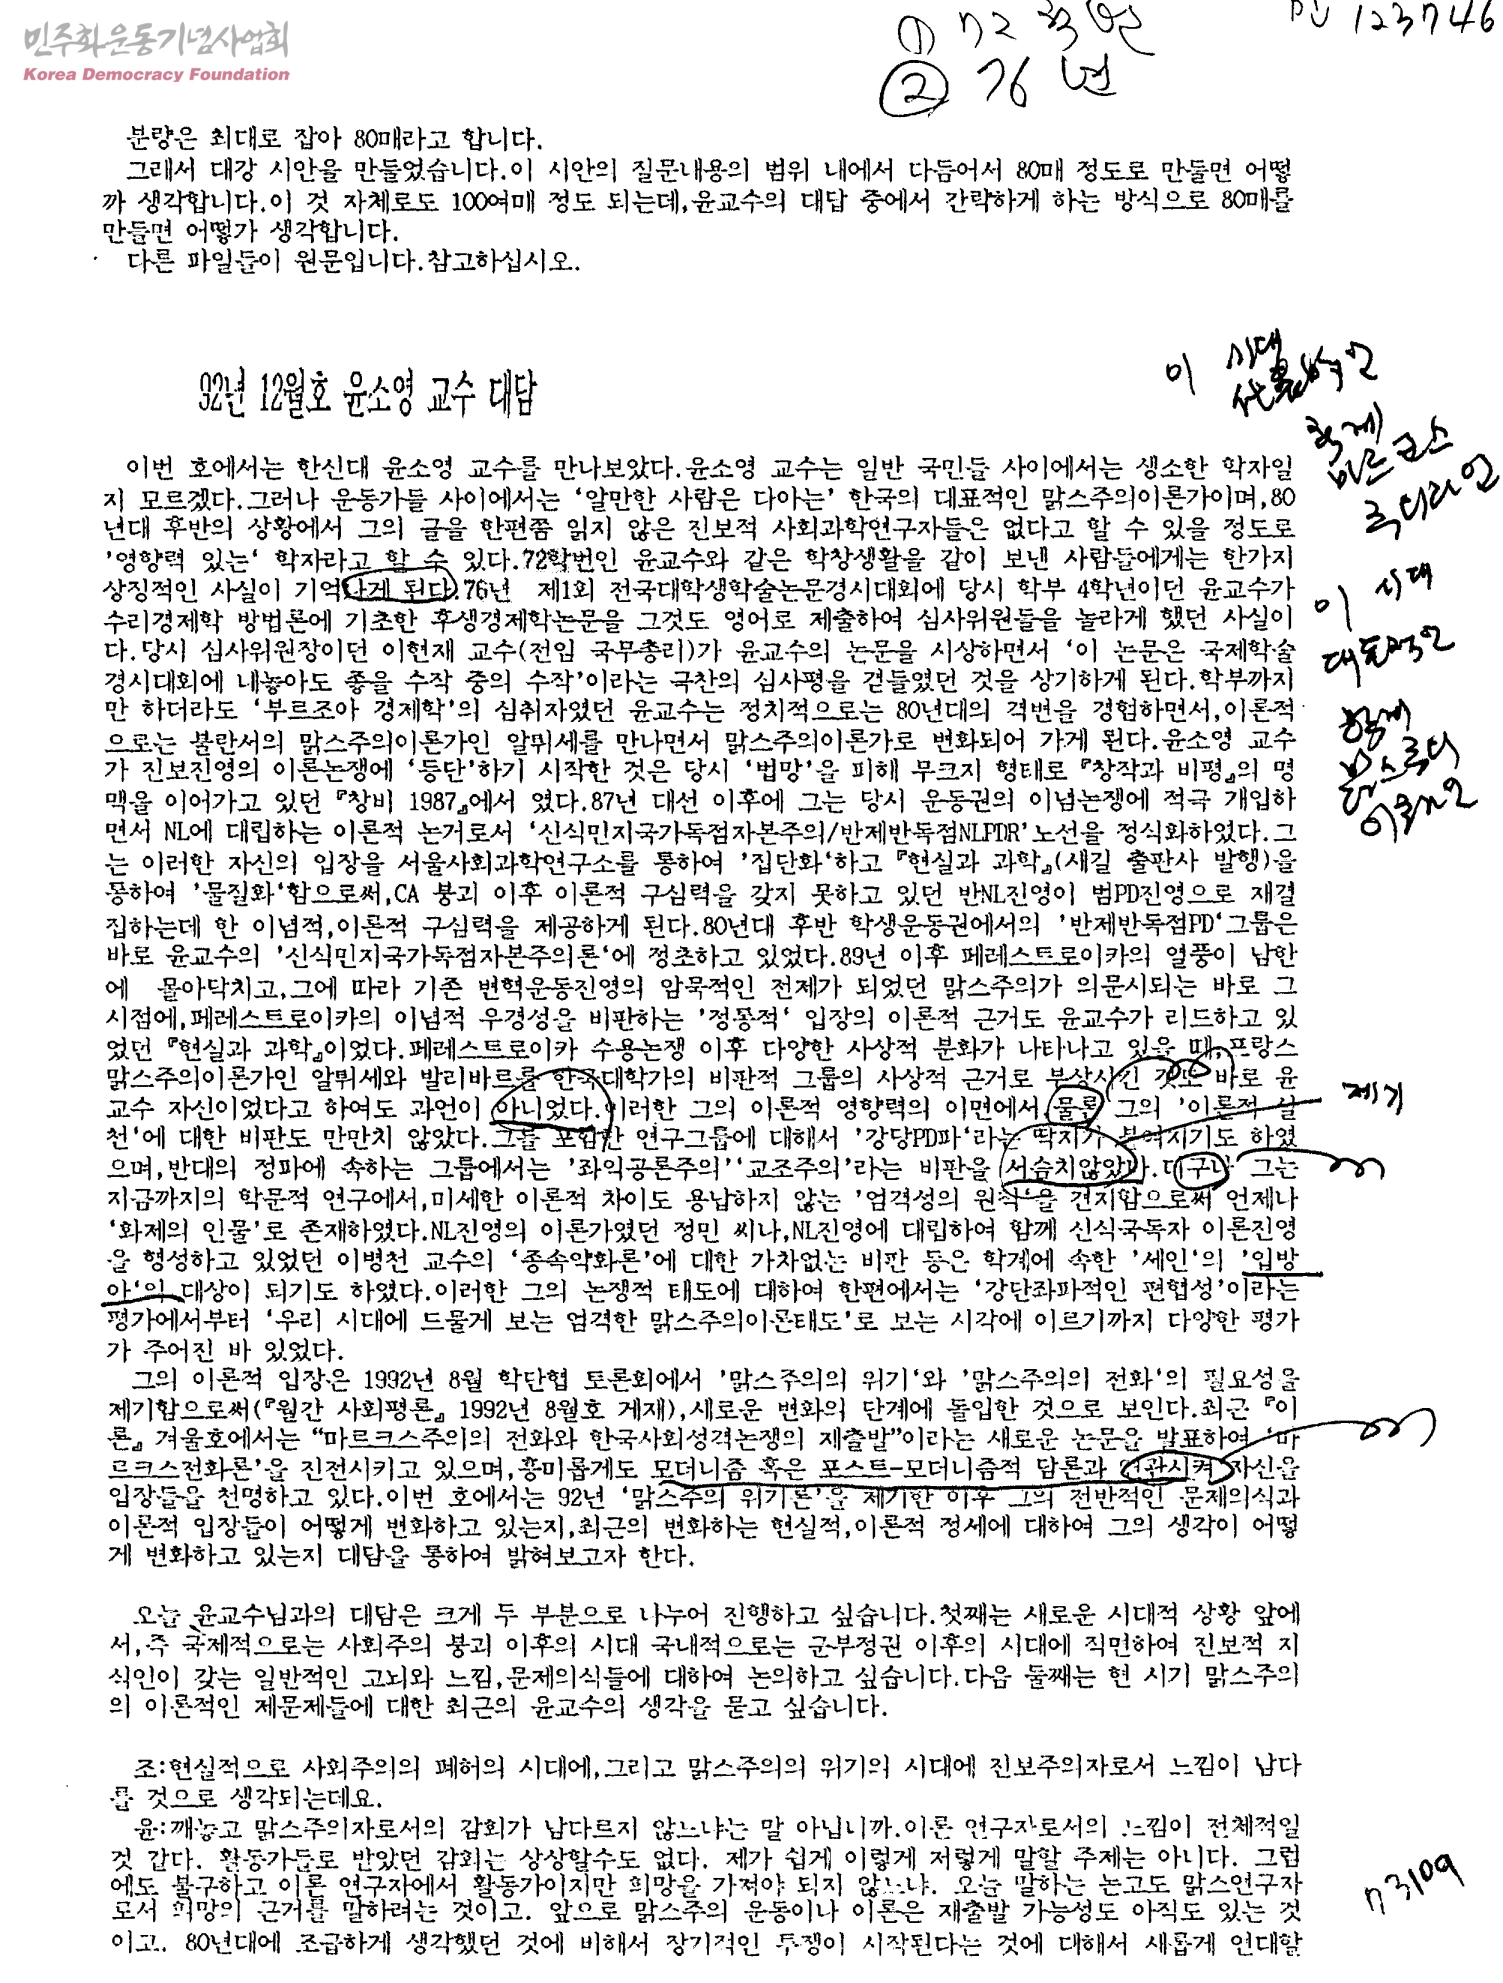 민주화운동기념사업회
Korea Democracy Foundation
① 72 학번
② 76 년
123746
분량은 최대로 잡아 80매라고 합니다.
그래서 대강 시안을 만들었습니다.이 시안의 질문내용의 범위 내에서 다듬어서 80매 정도로 만들면 어떻
까 생각합니다.이 것 자체로도 100여매 정도 되는데,윤교수의 대답 중에서 간략하게 하는 방식으로 80매를
만들면 어떻가 생각합니다.
다른 파일들이 원문입니다.참고하십시오.
92년 12월호 윤소영 교수 대담
이 시대
이번 호에서는 한신대 윤소영 교수를 만나보았다.윤소영 교수는 일반 국민들 사이에서는 생소한 학자일
지 모르겠다.그러나 운동가들 사이에서는 '알만한 사람은 다아는' 한국의 대표적인 맑스주의이론가이며,80
년대 후반의 상황에서 그의 글을 한편쯤 읽지 않은 진보적 사회과학연구자들은 없다고 할 수 있을 정도로
'영향력 있는' 학자라고 할 수 있다.72학번인 윤교수와 같은 학창생활을 같이 보낸 사람들에게는 한가지
상징적인 사실이 기억나게 된다.76년 제1회 전국대학생학술논문경시대회에 당시 학부 4학년이던 윤교수가
수리경제학 방법론에 기초한 후생경제학논문을 그것도 영어로 제출하여 심사위원들을 놀라게 했던 사실이
다.당시 심사위원장이던 이현재 교수(전임 국무총리)가 윤교수의 논문을 시상하면서 '이 논문은 국제학술
경시대회에 내놓아도 좋을 수작 중의 수작'이라는 극찬의 심사평을 곁들였던 것을 상기하게 된다.학부까지
만 하더라도 '부르조아 경제학'의 심취자였던 윤교수는 정치적으로는 80년대의 격변을 경험하면서,이론적
으로는 불란서의 맑스주의이론가인 알뛰세를 만나면서 맑스주의이론가로 변화되어 가게 된다.윤소영 교수
가 진보진영의 이론논쟁에 '등단'하기 시작한 것은 당시 '법망'을 피해 무크지 형태로 『창작과 비평』의 명
맥을 이어가고 있던 『창비 1987』에서 였다.87년 대선 이후에 그는 당시 운동권의 이념논쟁에 적극 개입하
면서 NL에 대립하는 이론적 논거로서 '신식민지국가독점자본주의/반제반독점NLPDR'노선을 정식화하였다.그
는 이러한 자신의 입장을 서울사회과학연구소를 통하여 '집단화'하고 『현실과 과학』(새길 출판사 발행)을
통하여 '물질화'함으로써,CA 붕괴 이후 이론적 구심력을 갖지 못하고 있던 반NL진영이 범PD진영으로 재결
집하는데 한 이념적,이론적 구심력을 제공하게 된다.80년대 후반 학생운동권에서의 '반제반독점PD'그룹은
바로 윤교수의 '신식민지국가독점자본주의론'에 정초하고 있었다.89년 이후 페레스트로이카의 열풍이 남한
에 몰아닥치고,그에 따라 기존 변혁운동진영의 암묵적인 전제가 되었던 맑스주의가 의문시되는 바로 그
시점에,페레스트로이카의 이념적 우경성을 비판하는 '정통적' 입장의 이론적 근거도 윤교수가 리드하고 있
었던 『현실과 과학』이었다.페레스트로이카 수용논쟁 이후 다양한 사상적 분화가 나타나고 있을 때,프랑스
맑스주의이론가인 알뛰세와 발리바르를 한국대학가의 비판적 그룹의 사상적 근거로 부상시킨 것도 바로 윤
교수 자신이었다고 하여도 과언이 아니었다.이러한 그의 이론적 영향력의 이면에서 물론 그의 '이론적 실
제기
천'에 대한 비판도 만만치 않았다.그를 포함한 연구그룹에 대해서 '강당PD파'라는 딱지가 붙여지기도 하였
으며,반대의 정파에 속하는 그룹에서는 '좌익공론주의''교조주의'라는 비판을 서슴치않았다.더구나 그는
지금까지의 학문적 연구에서,미세한 이론적 차이도 용납하지 않는 '엄격성의 원칙'을 견지함으로써 언제나
'화제의 인물'로 존재하였다.NL진영의 이론가였던 정민 씨나,NL진영에 대립하여 함께 신식국독자 이론진영
을 형성하고 있었던 이병천 교수의 '종속약화론'에 대한 가차없는 비판 등은 학계에 속한 '세인'의 '입방
아'의 대상이 되기도 하였다.이러한 그의 논쟁적 태도에 대하여 한편에서는 '강단좌파적인 편협성'이라는
평가에서부터 '우리 시대에 드물게 보는 엄격한 맑스주의이론태도'로 보는 시각에 이르기까지 다양한 평가
가 주어진 바 있었다.
그의 이론적 입장은 1992년 8월 학단협 토론회에서 '맑스주의의 위기'와 '맑스주의의 전화'의 필요성을
제기함으로써(『월간 사회평론』 1992년 8월호 게재),새로운 변화의 단계에 돌입한 것으로 보인다.최근 『이
론』 겨울호에서는 "마르크스주의의 전화와 한국사회성격논쟁의 재출발"이라는 새로운 논문을 발표하여 '마
르크스전화론'을 진전시키고 있으며,흥미롭게도 모더니즘 혹은 포스트-모더니즘적 담론과 연관시켜 자신을
입장들을 천명하고 있다.이번 호에서는 92년 '맑스주의 위기론'을 제기한 이후 그의 전반적인 문제의식과
이론적 입장들이 어떻게 변화하고 있는지,최근의 변화하는 현실적,이론적 정세에 대하여 그의 생각이 어떻
게 변화하고 있는지 대담을 통하여 밝혀보고자 한다.
오늘 윤교수님과의 대담은 크게 두 부분으로 나누어 진행하고 싶습니다.첫째는 새로운 시대적 상황 앞에
서,즉 국제적으로는 사회주의 붕괴 이후의 시대 국내적으로는 군부정권 이후의 시대에 직면하여 진보적 지
식인이 갖는 일반적인 고뇌와 느낌,문제의식들에 대하여 논의하고 싶습니다.다음 둘째는 현 시기 맑스주의
의 이론적인 제문제들에 대한 최근의 윤교수의 생각을 묻고 싶습니다.
조:현실적으로 사회주의의 폐허의 시대에,그리고 맑스주의의 위기의 시대에 진보주의자로서 느낌이 남다
를 것으로 생각되는데요.
윤:깨놓고 맑스주의자로서의 감회가 남다르지 않느냐는 말 아닙니까.이론 연구자로서의 느낌이 전체적일
것 같다. 활동가들로 받았던 감회는 상상할수도 없다. 제가 쉽게 이렇게 저렇게 말할 주제는 아니다. 그럼
에도 불구하고 이론 연구자에서 활동가이지만 희망을 가져야 되지 않느냐. 오늘 말하는 논고도 맑스연구자
로서 희망의 근거를 말하려는 것이고. 앞으로 맑스주의 운동이나 이론은 재출발 가능성도 아직도 있는 것
이고. 80년대에 조급하게 생각했던 것에 비해서 장기적인 투쟁이 시작된다는 것에 대해서 새롭게 연대할
n3109